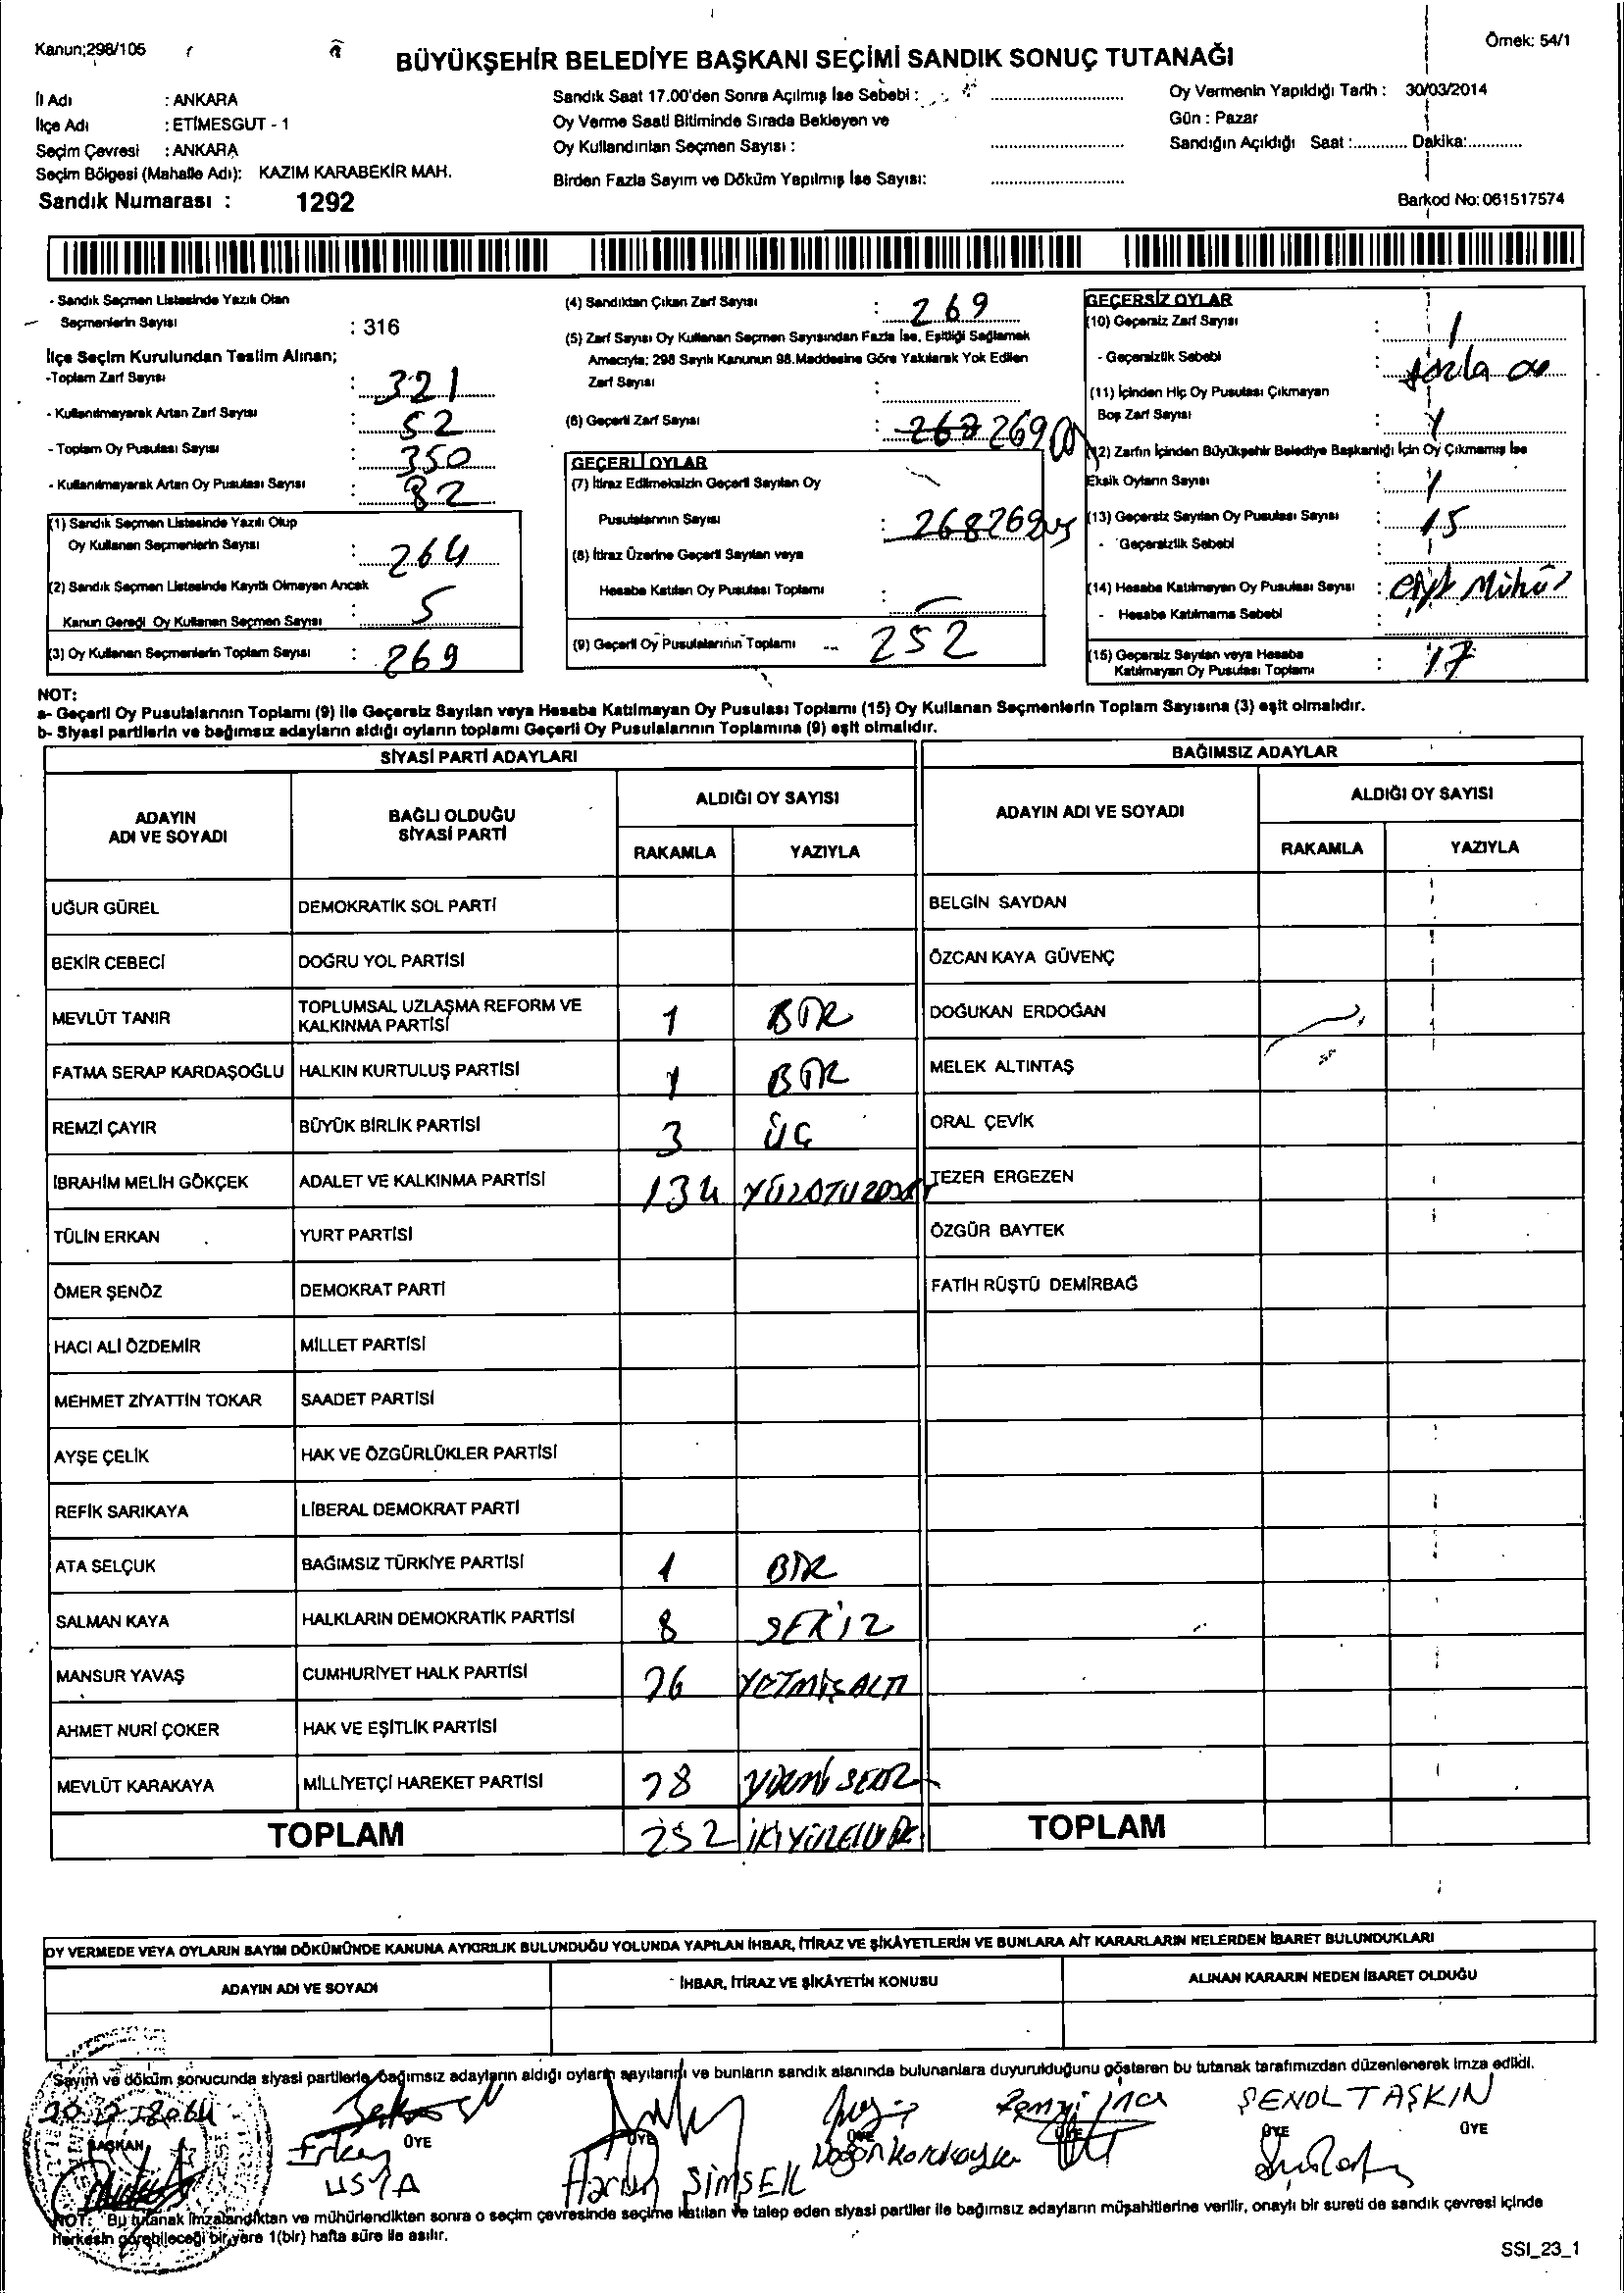 Kanun;298/105
Örnek: 54/1
BÜYÜKŞEHİR BELEDİYE BAŞKANI SEÇİMİ SANDIK SONUÇ TUTANAĞI
İl Adı : ANKARA
İlçe Adı : ETİMESGUT - 1
Seçim Çevresi : ANKARA
Seçim Bölgesi (Mahalle Adı): KAZIM KARABEKİR MAH.
Sandık Numarası : 1292
Sandık Saat 17.00'den Sonra Açılmış İse Sebebi :
Oy Verme Saati Bitiminde Sırada Bekleyen ve
Oy Kullandırılan Seçmen Sayısı :
Birden Fazla Sayım ve Döküm Yapılmış İse Sayısı:
Oy Vermenin Yapıldığı Tarih : 30/03/2014
Gün : Pazar
Sandığın Açıldığı Saat :............ Dakika:............
Barkod No: 061517574
- Sandık Seçmen Listesinde Yazılı Olan
Seçmenlerin Sayısı : 316
İlçe Seçim Kurulundan Teslim Alınan;
-Toplam Zarf Sayısı : 321
- Kullanılmayarak Artan Zarf Sayısı : 52
- Toplam Oy Pusulası Sayısı : 350
- Kullanılmayarak Artan Oy Pusulası Sayısı : 82
(1) Sandık Seçmen Listesinde Yazılı Olup
Oy Kullanan Seçmenlerin Sayısı : 264
(2) Sandık Seçmen Listesinde Kayıtlı Olmayan Ancak
Kanun Gereği Oy Kullanan Seçmen Sayısı : 5
(3) Oy Kullanan Seçmenlerin Toplam Sayısı : 269
(4) Sandıktan Çıkan Zarf Sayısı : 269
(5) Zarf Sayısı Oy Kullanan Seçmen Sayısından Fazla İse, Eşitliği Sağlamak
Amacıyla; 298 Sayılı Kanunun 98.Maddesine Göre Yakılarak Yok Edilen
Zarf Sayısı :
(6) Geçerli Zarf Sayısı : 268 269
GEÇERLİ OYLAR
(7) İtiraz Edilmeksizin Geçerli Sayılan Oy
Pusulalarının Sayısı : 268 269
(8) İtiraz Üzerine Geçerli Sayılan veya
Hesaba Katılan Oy Pusulası Toplamı : -
(9) Geçerli Oy Pusulalarının Toplamı 252
GEÇERSİZ OYLAR
(10) Geçersiz Zarf Sayısı : 1
- Geçersizlik Sebebi : fazla oy
(11) İçinden Hiç Oy Pusulası Çıkmayan
Boş Zarf Sayısı : 1
(12) Zarfın İçinden Büyükşehir Belediye Başkanlığı İçin Oy Çıkmamış İse
Eksik Oyların Sayısı : 1
(13) Geçersiz Sayılan Oy Pusulası Sayısı : 15
- Geçersizlik Sebebi :
(14) Hesaba Katılmayan Oy Pusulası Sayısı :
- Hesaba Katılmama Sebebi
(15) Geçersiz Sayılan veya Hesaba
Katılmayan Oy Pusulası Toplamı : 17
NOT:
a- Geçerli Oy Pusulalarının Toplamı (9) ile Geçersiz Sayılan veya Hesaba Katılmayan Oy Pusulası Toplamı (15) Oy Kullanan Seçmenlerin Toplam Sayısına (3) eşit olmalıdır.
b- Siyasi partilerin ve bağımsız adayların aldığı oyların toplamı Geçerli Oy Pusulalarının Toplamına (9) eşit olmalıdır.
SİYASİ PARTİ ADAYLARI
BAĞIMSIZ ADAYLAR
ADAYIN ADI VE SOYADI
BAĞLI OLDUĞU SİYASİ PARTİ
ALDIĞI OY SAYISI
RAKAMLA YAZIYLA
ADAYIN ADI VE SOYADI
ALDIĞI OY SAYISI
RAKAMLA YAZIYLA
UĞUR GÜREL DEMOKRATİK SOL PARTİ BELGİN SAYDAN
BEKİR CEBECİ DOĞRU YOL PARTİSİ ÖZCAN KAYA GÜVENÇ
MEVLÜT TANIR TOPLUMSAL UZLAŞMA REFORM VE KALKINMA PARTİSİ 1 BİR DOĞUKAN ERDOĞAN
FATMA SERAP KARDAŞOĞLU HALKIN KURTULUŞ PARTİSİ 1 BİR MELEK ALTINTAŞ
REMZİ ÇAYIR BÜYÜK BİRLİK PARTİSİ 3 ÜÇ ORAL ÇEVİK
İBRAHİM MELİH GÖKÇEK ADALET VE KALKINMA PARTİSİ 134 YÜZOTUZDÖRT TEZER ERGEZEN
TÜLİN ERKAN YURT PARTİSİ ÖZGÜR BAYTEK
ÖMER ŞENÖZ DEMOKRAT PARTİ FATİH RÜŞTÜ DEMİRBAĞ
HACI ALİ ÖZDEMİR MİLLET PARTİSİ
MEHMET ZİYATTİN TOKAR SAADET PARTİSİ
AYŞE ÇELİK HAK VE ÖZGÜRLÜKLER PARTİSİ
REFİK SARIKAYA LİBERAL DEMOKRAT PARTİ
ATA SELÇUK BAĞIMSIZ TÜRKİYE PARTİSİ 1 BİR
SALMAN KAYA HALKLARIN DEMOKRATİK PARTİSİ 8 SEKİZ
MANSUR YAVAŞ CUMHURİYET HALK PARTİSİ 76 YETMİŞALTI
AHMET NURİ ÇOKER HAK VE EŞİTLİK PARTİSİ
MEVLÜT KARAKAYA MİLLİYETÇİ HAREKET PARTİSİ 28 YİRMİ SEKİZ
TOPLAM 252 İKİYÜZELLİ TOPLAM
OY VERMEDE VEYA OYLARIN SAYIM DÖKÜMÜNDE KANUNA AYKIRILIK BULUNDUĞU YOLUNDA YAPILAN İHBAR, İTİRAZ VE ŞİKÂYETLERİN VE BUNLARA AİT KARARLARIN NELERDEN İBARET BULUNDUKLARI
ADAYIN ADI VE SOYADI
İHBAR, İTİRAZ VE ŞİKÂYETİN KONUSU
ALINAN KARARIN NEDEN İBARET OLDUĞU
Sayım ve döküm sonucunda siyasi partilerle bağımsız adayların aldığı oyların sayılarını ve bunların sandık alanında bulunanlara duyurulduğunu gösteren bu tutanak tarafımızdan düzenlenerek imza edildi.
Remzi İnce ŞENOL TAŞKIN
BAŞKAN ÜYE ÜYE ÜYE ÜYE ÜYE ÜYE
Erkan USTA
Harun ŞİMŞEK
NOT: Bu tutanak imzalandıktan ve mühürlendikten sonra o seçim çevresinde seçime katılan ve talep eden siyasi partiler ile bağımsız adayların müşahitlerine verilir, onaylı bir sureti de sandık çevresi içinde
Herkesin görebileceği bir yere 1(bir) hafta süre ile asılır.
SSI_23_1